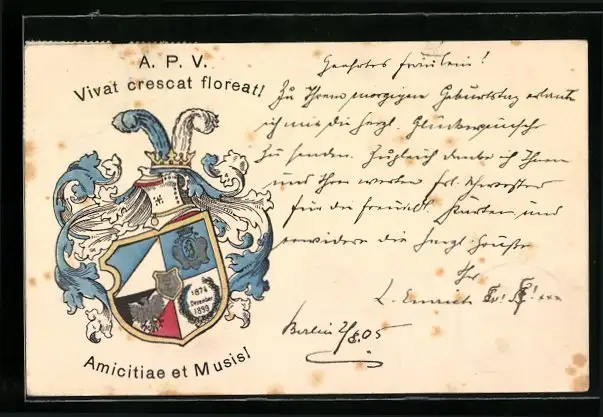 A. P. V.
Vivat crescat floreat!
1874
Dezember
1899
Amicitiae et Musis!
Geehrtes Fräulein!
Zu Ihrem morgigen Geburtstag erlaube
ich mir die herzl. Glückwünsche
zu senden. Zugleich danke ich Ihnen
und Ihrer werten Frl. Schwester
für die freundl. Karten und
erwidere die herzl. Grüße
Ihr
L. Emrich
Berlin 2/8.05